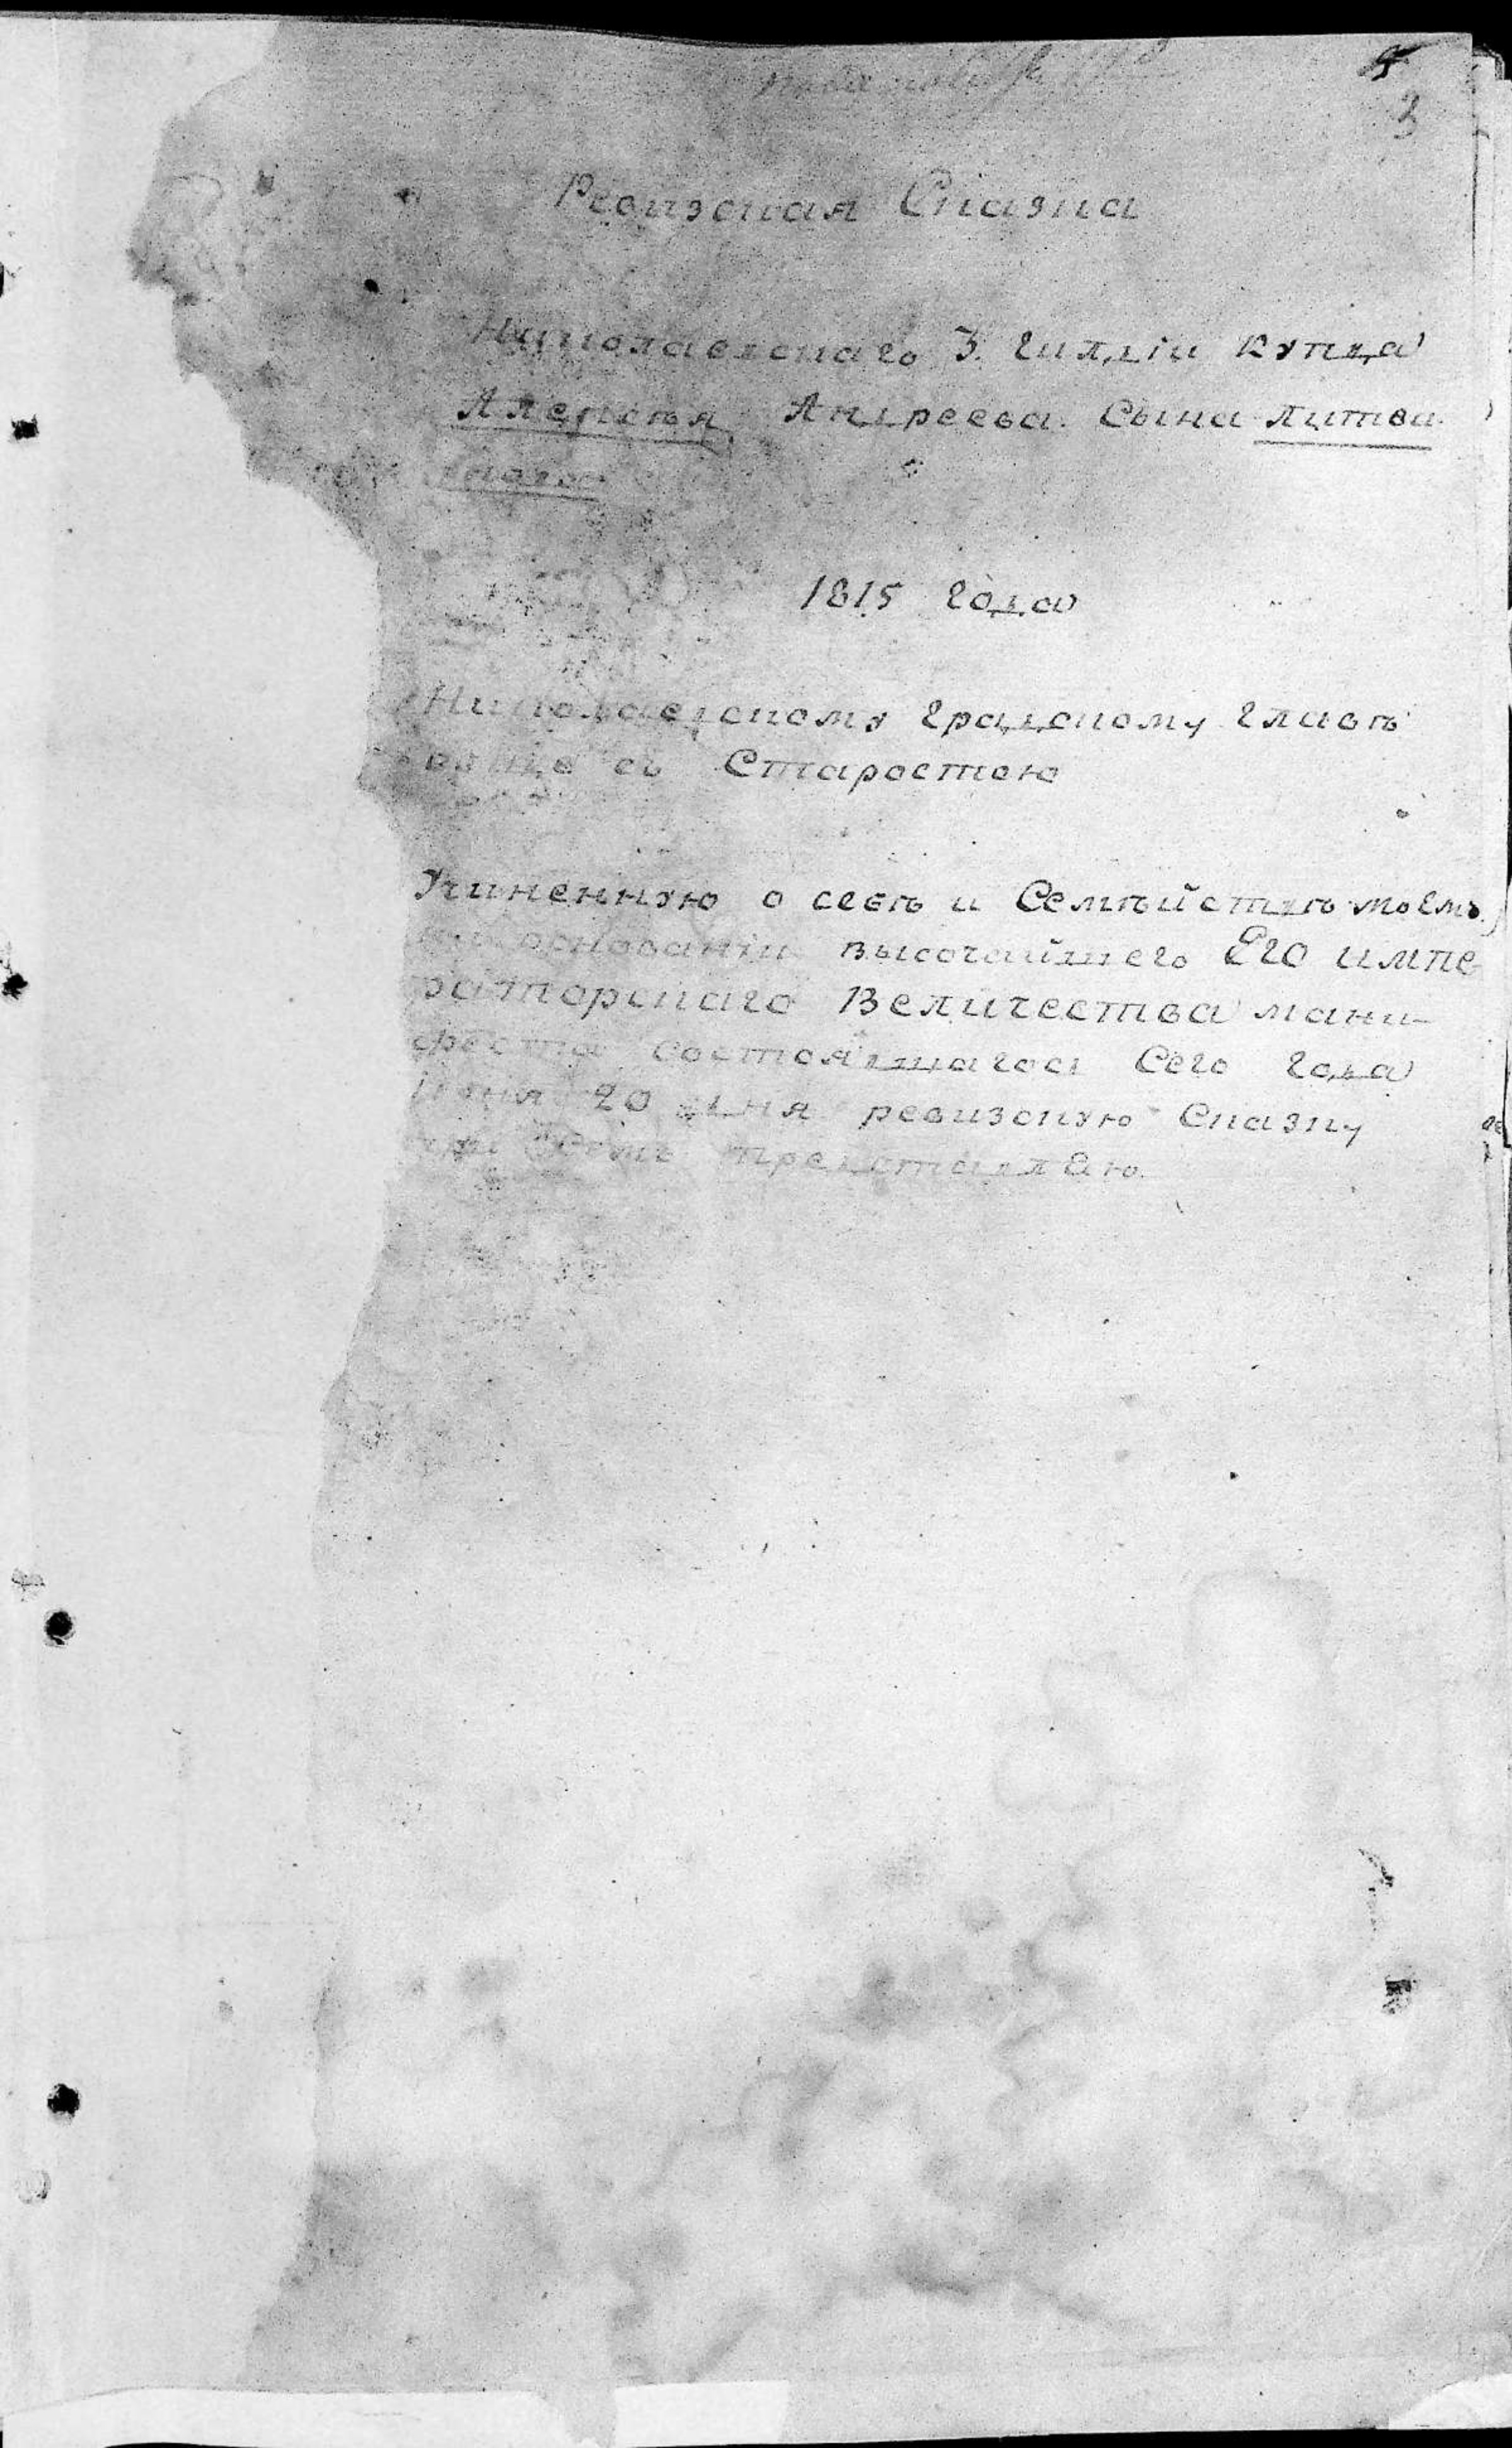 3
Ревизская Сказка
Николаевскаго 3. гилдіи купца
Алексѣя Андреева Сына Литви-
1815 года
Николаевскому градскому главѣ
съ Старостою
Учиненную о себѣ и Семѣйствѣ моемъ
на основаніи высочайшего Его импе
раторскаго Величества мани-
феста состоявшагося Сего года
Июня 20 дня ревизскую Сказку
при Семъ представляю.